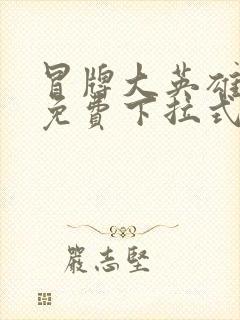 冒牌大英雄
免費下拉式
嚴志堅